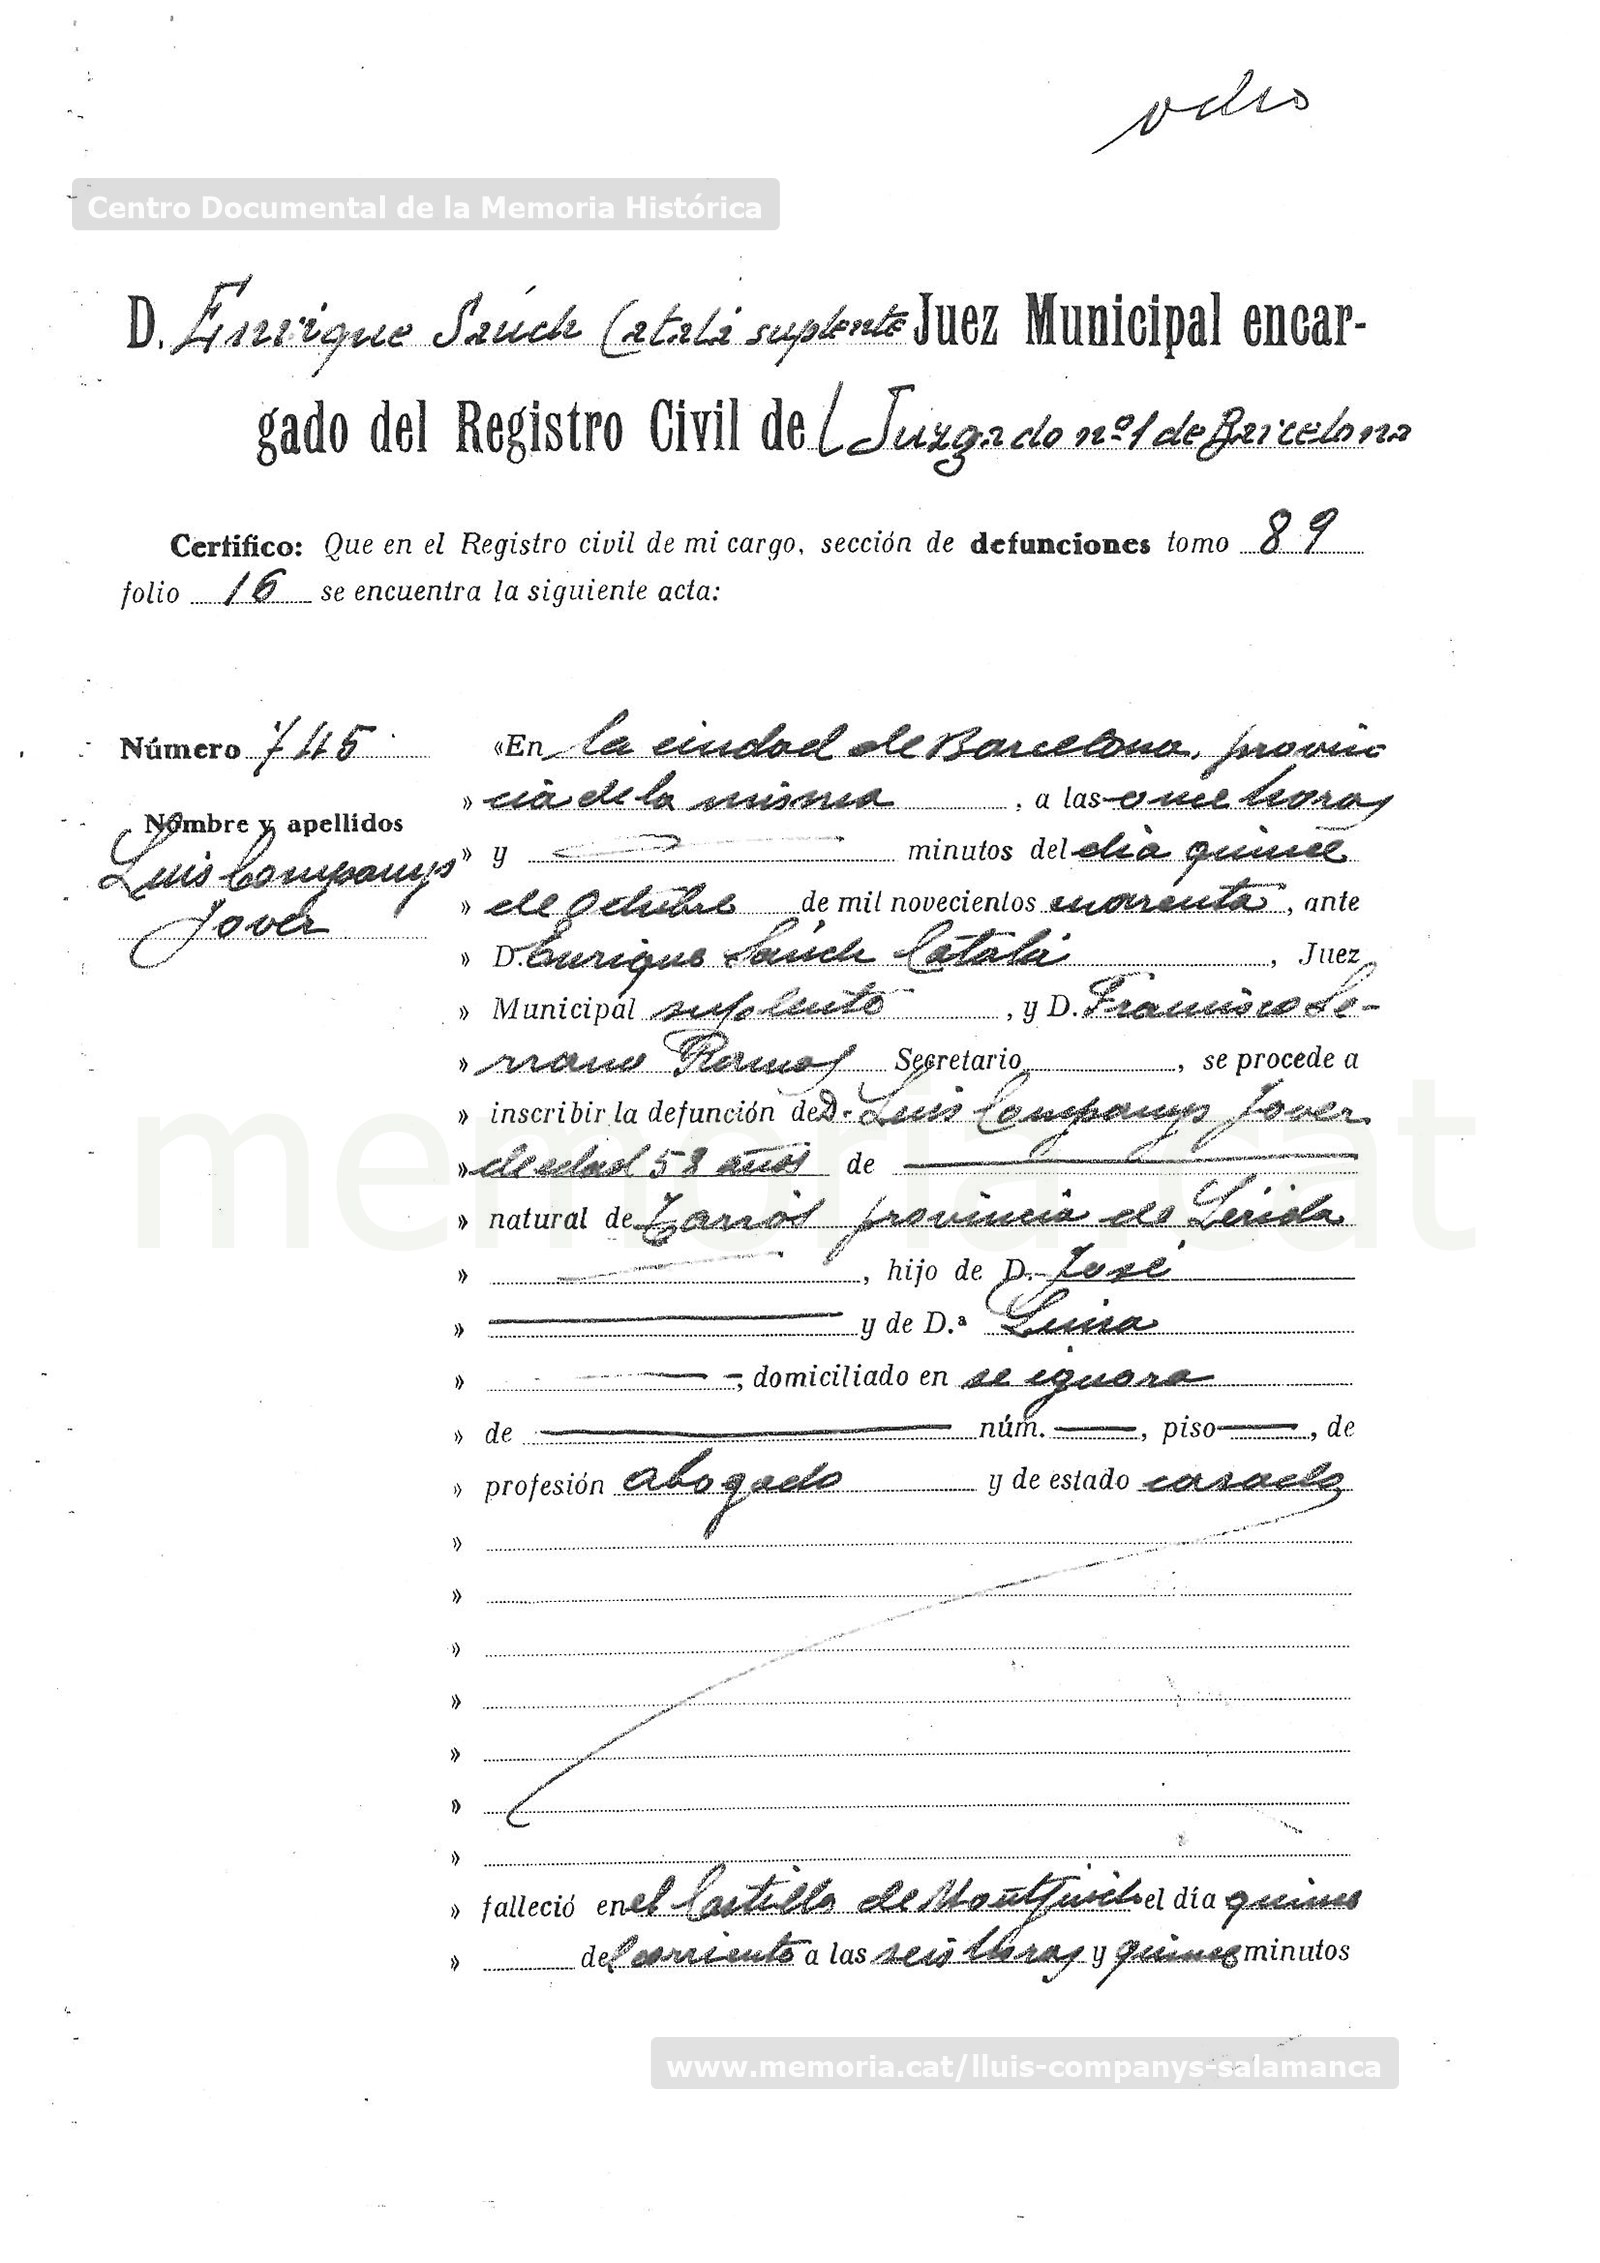 ocho
Centro Documental de la Memoria Histórica
D. Enrique Saúch Catalá suplente Juez Municipal encar-
gado del Registro Civil de l Juzgado nº 1 de Barcelona
Certifico: Que en el Registro civil de mi cargo, sección de defunciones tomo 89
folio 16 se encuentra la siguiente acta:
Número 745
Nombre y apellidos
Luis Companys
Jover
«En la ciudad de Barcelona, provin
» cia de la misma , a las once horas
» y minutos del dia quince
» de Octubre de mil novecientos cuarenta, ante
» D. Enrique Saúch Catalá , Juez
» Municipal suplente , y D. Francisco Se-
» rrano Ramos Secretario , se procede a
» inscribir la defunción de D. Luis Companys Jover
» de edad 58 años de
» natural de Tarrós provincia de Lérida
» , hijo de D. José
» y de D.ª Luisa
» , domiciliado en se ignora
» de núm. , piso , de
» profesión abogado y de estado casado
»
»
»
»
»
»
»
» falleció en el Castillo de Montjuich el día quince
» del corriente a las seis horas y quince minutos
memoria.cat
www.memoria.cat/lluis-companys-salamanca